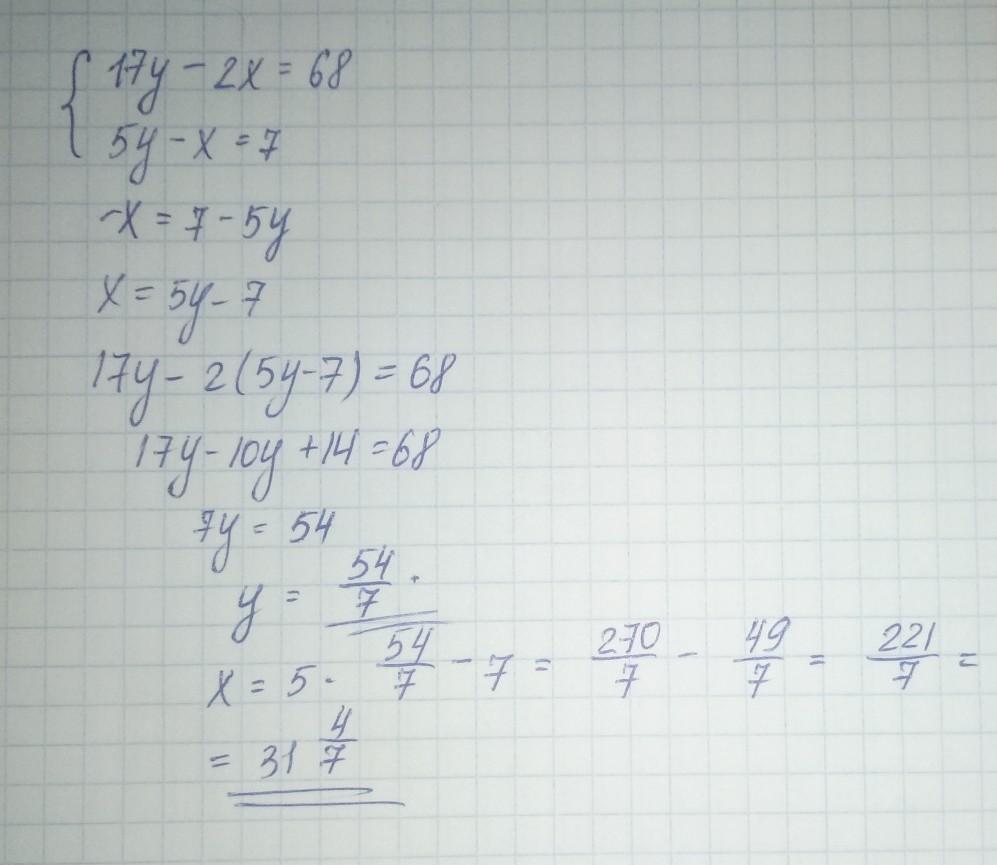 { 17y - 2x = 68
5y - x = 7
-x = 7 - 5y
x = 5y - 7
17y - 2(5y-7) = 68
17y - 10y + 14 = 68
7y = 54
y = 54/7 .
x = 5 · 54/7 - 7 = 270/7 - 49/7 = 221/7 =
= 31 4/7